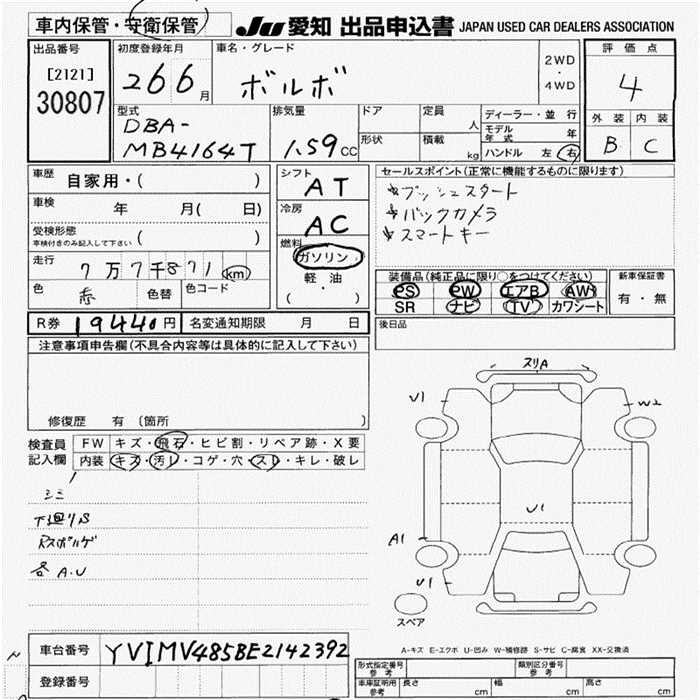 車内保管・守衛保管 JU 愛知 出品申込書 JAPAN USED CAR DEALERS ASSOCIATION
出品番号 初度登録年月 車名・グレード 2WD・4WD 評価点
[2121] 26 6月 ボルボ 4
30807
型式 排気量 ドア 定員 人 ディーラー・並行 外装 内装
DBA- モデル年式 年
MB4164T 1.59CC 形状 積載 kg ハンドル 左 右 B C
車歴 自家用・( ) シフト AT セールスポイント(正常に機能するものに限ります)
車検 年 月( 日) 冷房 AC *プッシュスタート
受検形態 *バックカメラ
車検付きのみ記入して下さい ( ) 燃料 *スマートキー
走行 7万7千871km ガソリン
軽・油
( )
色 赤 色替 色コード 装備品(純正品に限り○をつけてください) 新車保証書
PS PW エアB AW 有・無
SR ナビ TV カワシート
R券 19440円 名変通知期限 月 日 後日品
注意事項申告欄(不具合内容等は具体的に記入して下さい)
修復歴 有 〔箇所 〕
検査員記入欄 FW キズ・飛石・ヒビ割・リペア跡・X要
内装 キズ・汚レ・コゲ・穴・スレ・キレ・破レ
シミ
下廻りS
各A.U
スリA
U1
W2
U1
A1
U1
スペア
A-キズ E-エクボ U-凹み W-補修跡 S-サビ C-腐食 XX-交換済
車台番号 YV1MV485BE2142392
登録番号
形式指定番号 参考 類別区分番号 参考
車庫証明用 参考 長さ cm 幅 cm 高さ cm